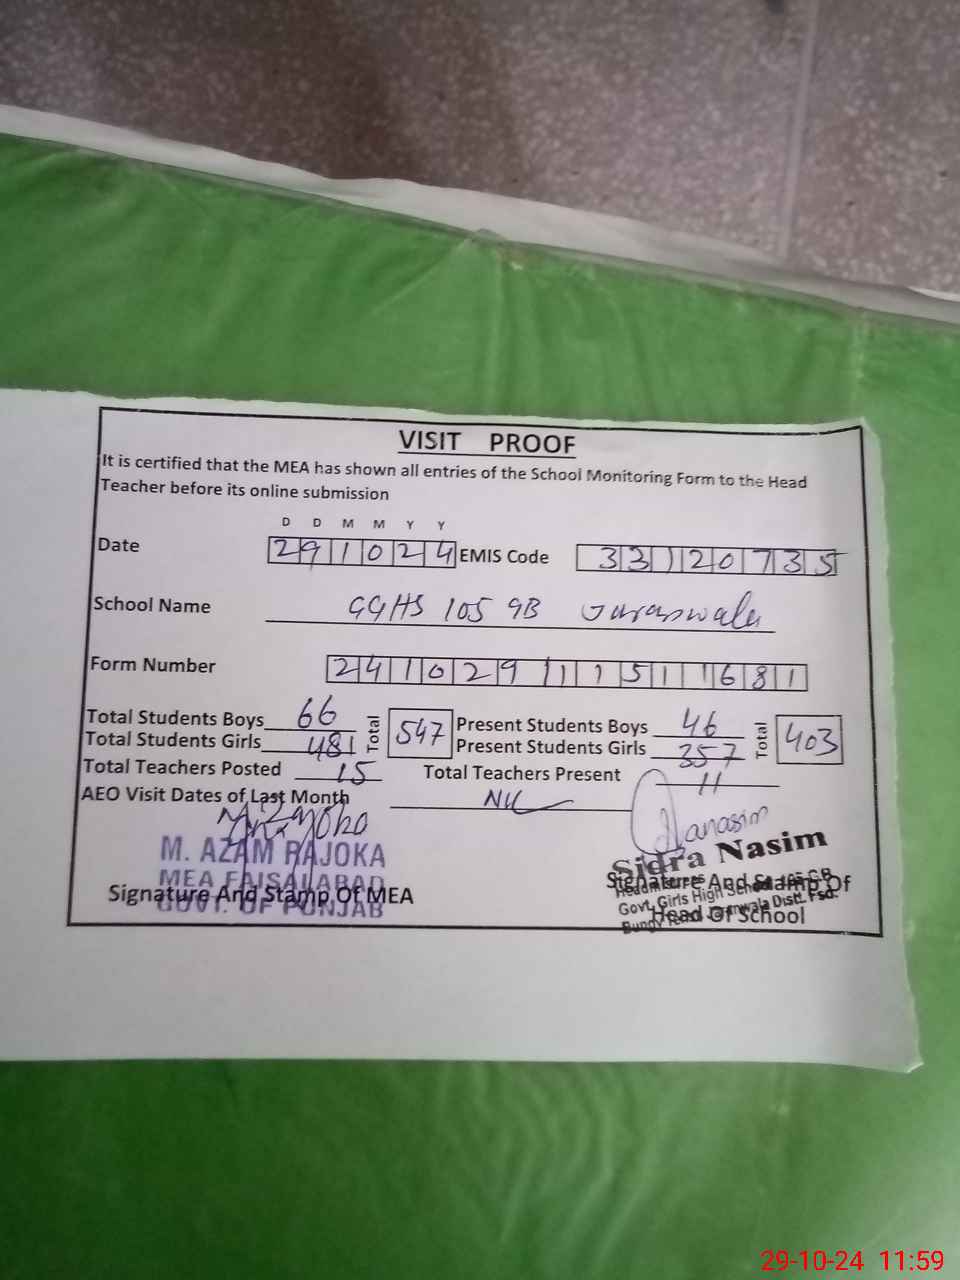 VISIT PROOF
It is certified that the MEA has shown all entries of the School Monitoring Form to the Head
Teacher before its online submission
D D M M Y Y
Date 291024 EMIS Code 33120735
School Name GGHS 105 GB
Form Number 241029111511681
Total Students Boys 66 Total 547 Present Students Boys 46 Total 403
Total Students Girls 481 Present Students Girls 357
Total Teachers Posted 15 Total Teachers Present 11
AEO Visit Dates of Last Month
M. AZAM RAJOKA
MEA FAISALABAD
GOVT. OF PUNJAB
Signature And Stamp Of MEA
Sidra Nasim
Govt. Girls High School 105 G.B
Signature And Stamp Of
Head Of School
29-10-24 11:59